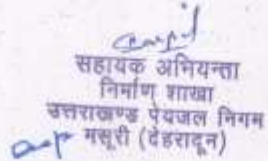 सहायक अभियन्ता
निर्माण शाखा
उत्तराखण्ड पेयजल निगम
मसूरी (देहरादून)